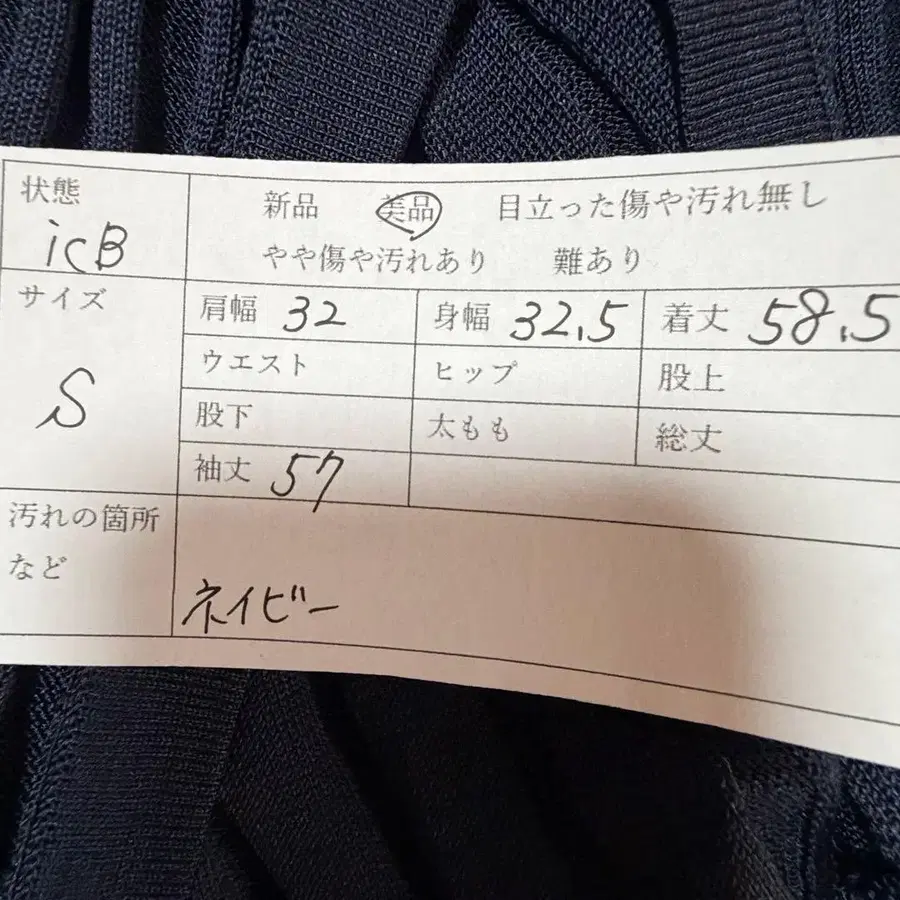 状態
icB
新品 美品 目立った傷や汚れ無し
やや傷や汚れあり 難あり
サイズ
S
肩幅 32 身幅 32.5 着丈 58.5
ウエスト ヒップ 股上
股下 太もも 総丈
袖丈 57
汚れの箇所
など
ネイビー